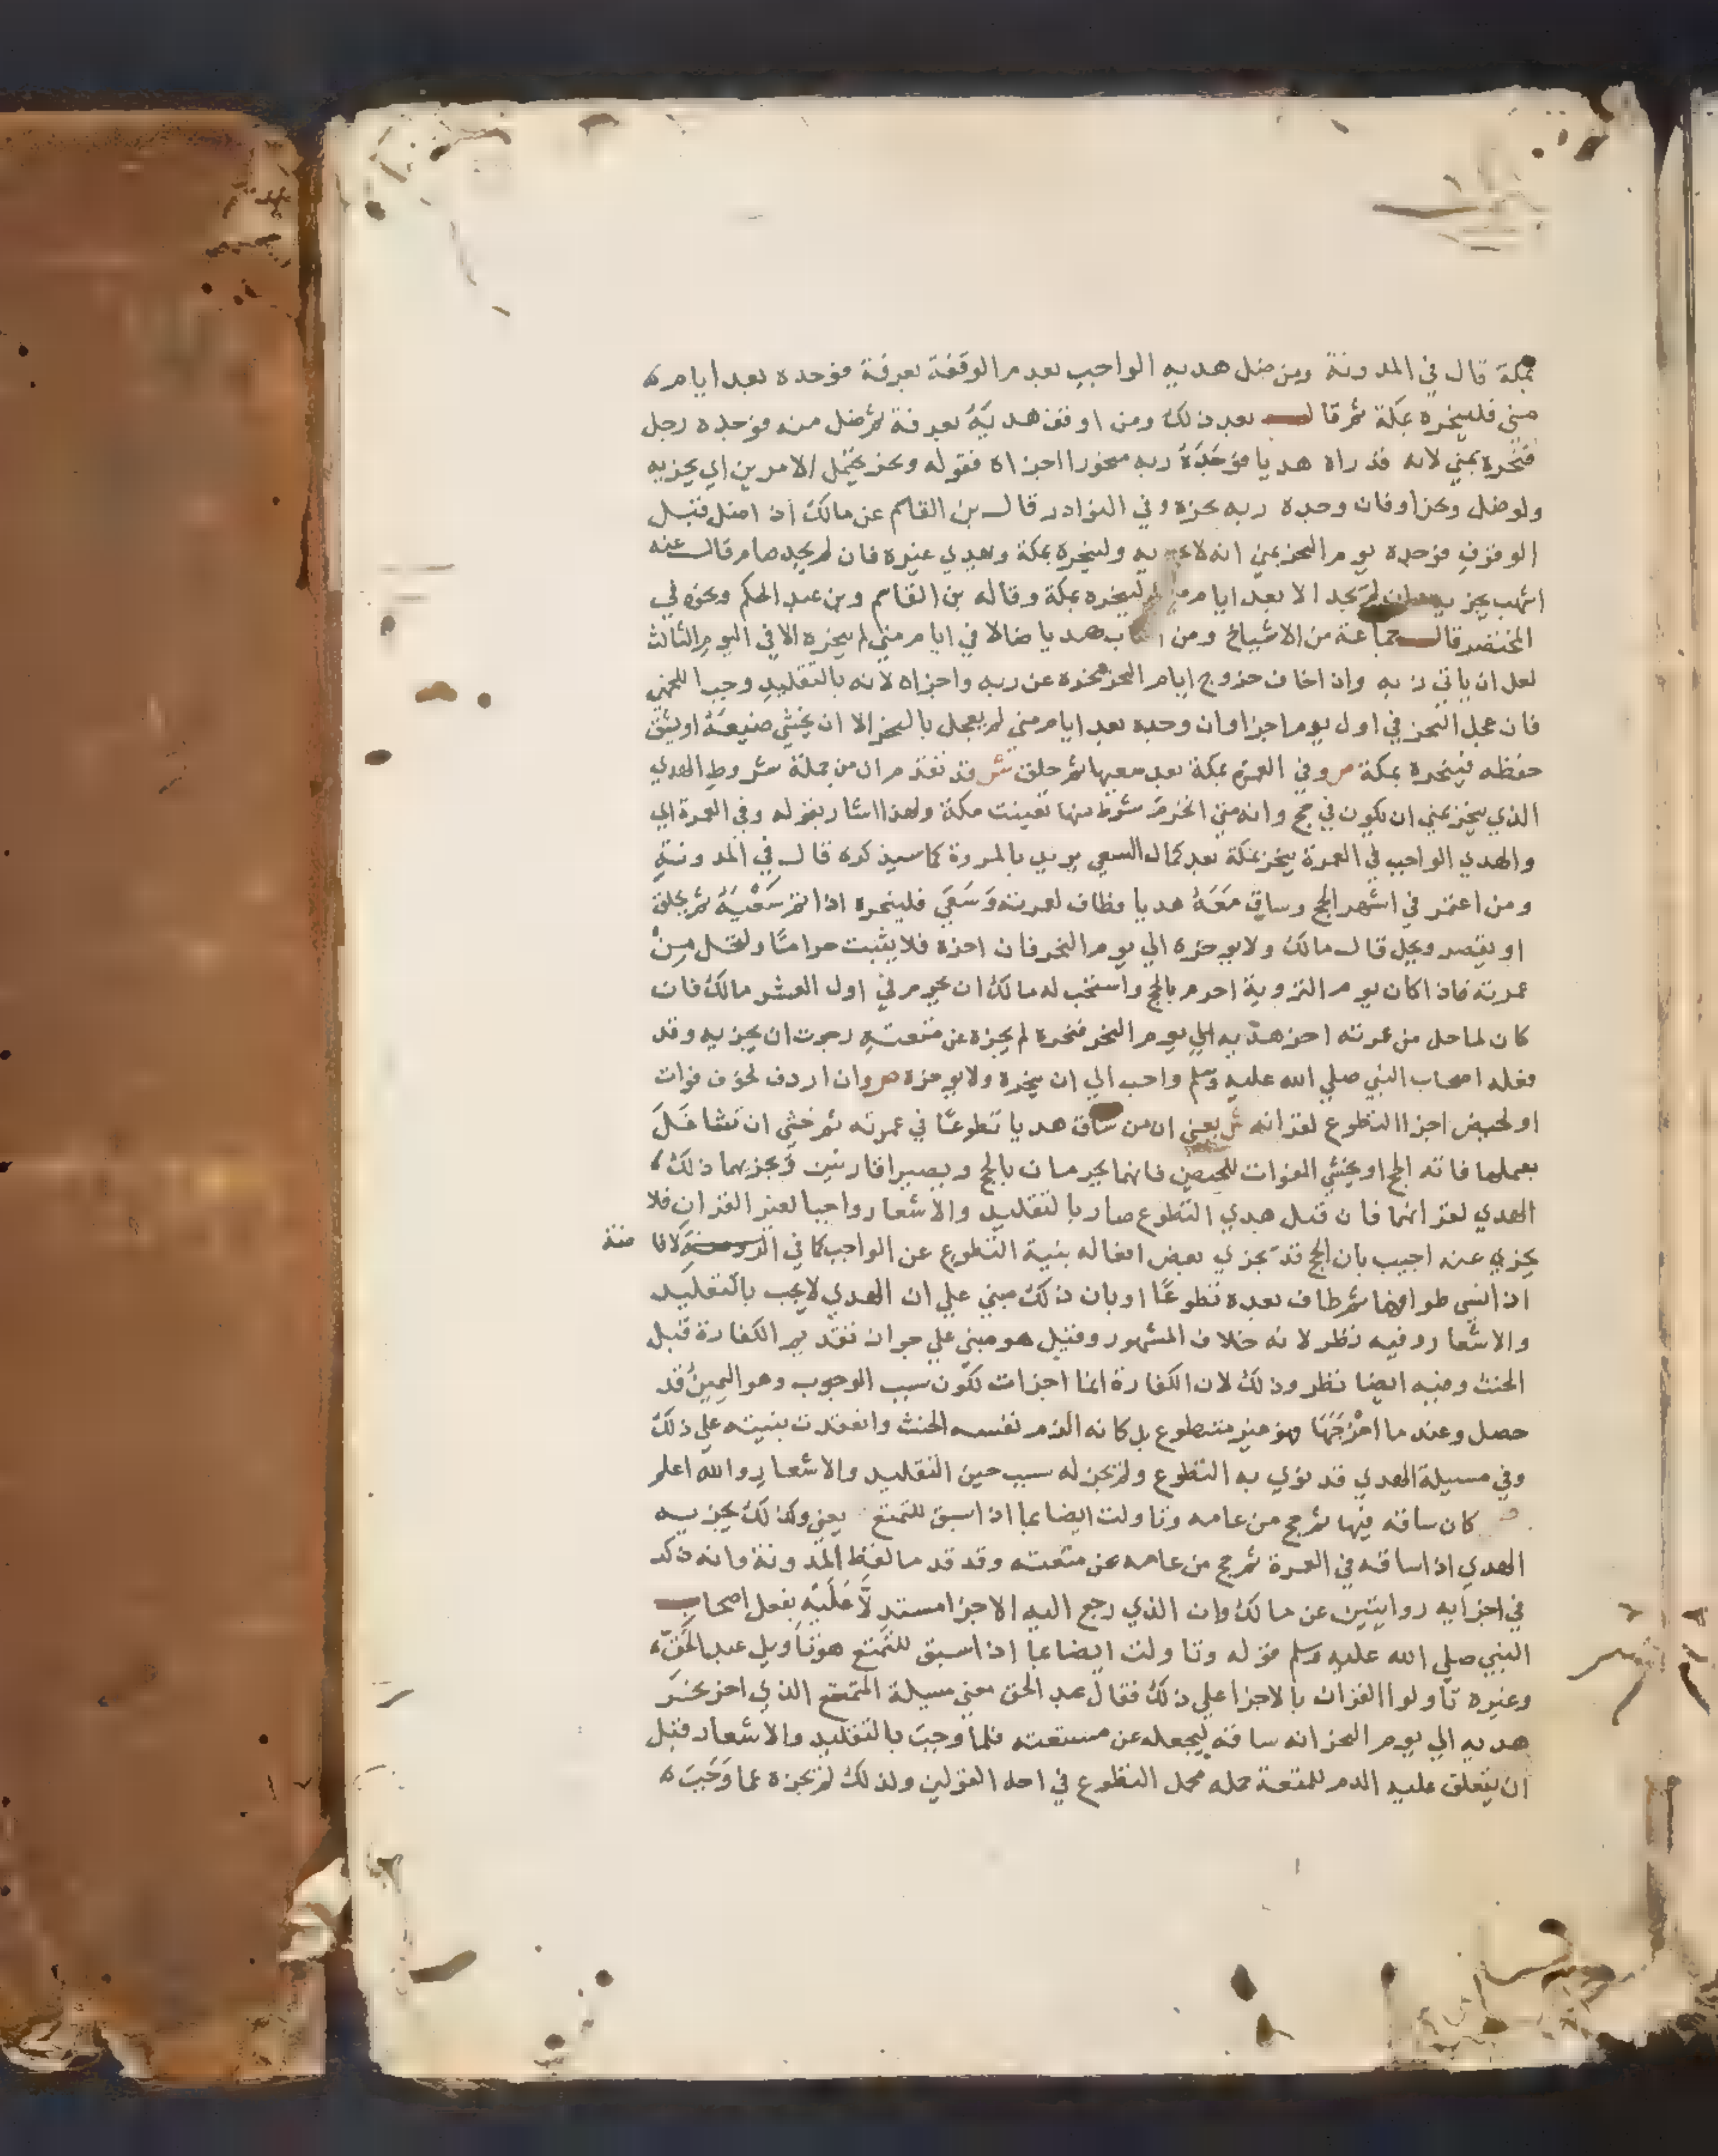 بمكة قال في المدونة ومن ضل هديه الواجب بعد مرالوقفة بعرفة فوجده بعد ايام
مني فلينحره بمكة ثم قال بعد ذلك ومن اوقف هديَهُ بعرفة ثم ضل منه فوجده رجل
فنحره بمني لانه قد راه هديا فوَجَدَهُ ربه منحورا اجزاه فقوله ونحر يحتمل الامرين اي يجزيه
ولوضل ونحر اوفان وجده ربه نحره وفي النوادر قال بن القاسم عن مالك ان اضل قبل
الوقوف فوجده يوم النحر بمني انه لا به ولينحره بمكة وهدي غيره فان لم يجد صام قال عنه
اشهب يجز يجد الا بعد ايام لينحره بمكة وقاله بن القاسم وبن عبد الحكم ونحوه في
المختصر قال جماعة من الاشياخ ومن هديا ضالا في ايام مني لم ينحره الا في اليوم الثالث
لعل ان ياتي ربه وان اخاف خروج ايام النحر نحره عن ربه واجزاه لانه بالتقليد وجب
فان عجل النحر في اول يوم اجزا وان وجده بعد ايام مني لم يعجل بالنحر الا ان يخشي ضيعَةً اويشق
حفظه فينحره بمكة ص وفي العمرة بمكة بعد سعيها ثم حلق ش قد تقدم ان من جملة شروط الهدي
الذي ينحر بمني ان يكون في حج وانه متي انخرم شرط منها تعينت مكة ولهذا اشار بقوله وفي العمرة اي
والهدي الواجب في العمرة ينحر بمكة بعد كمال السعي يريد بالمروة كما سيذكره قال في المدونة
ومن اعتمر في اشهر الحج وساق مَعَهُ هديا فطاف لعمرته وَسَعَي فلينحره اذا تم سَعْيَهُ ثم يحلق
او يقصر ويحل قال مالك ولا يوخره الي يوم النحر فان اخره فلا يثبت حرامًا وليحل مِنْ
عمرته فاذا كان يوم التروية احرم بالحج واستحب له مالك ان يحرم في اول العشر مالك فان
كان لما حل من عمرته اخر هديه الي يوم النحر فنحره لم يجزه عن متعته رجوت ان يجزيه وقد
فعله اصحاب النبي صلي الله عليه وسلم واحب الي ان ينحره ولا يوخره ص وان اردف لخوف فوات
او لحيض اجزا التطوع لقرانه ش يعني ان من ساق هديا تطوعًا في عمرته ثم خشي ان تشاغَلَ
بعملها فاته الحج او يخشي الفوات للحيض فانهما يحرمان بالحج ويصيرا قارنين وَيجزيهما ذلك
الهدي لقرانهما فان قيل هدي التطوع صار بالتقليد والاشعار واجبا لغير القران فلا
يجزي عنه اجيب بان الحج قد يجزي بعض افعاله بنية التطوع عن الواجب كما في
اذا نسي طواف ثم طاف بعده تطوعًا اوبان ذلك مبني علي ان الهدي لا يجب بالتقليد
والاشعار وفيه نظر لانه خلاف المشهور وقيل هو مبني علي جواز تقديم الكفارة قبل
الحنث وفيه ايضا نظر وذلك لان الكفارة انما اجزات لكون سبب الوجوب وهو اليمينُ قد
حصل وعند ما اخْرَجَهَا فهو غير متطوع بل كانه الزم نفسه الحنث وانعقدت بنيته علي ذلك
وفي مسيلة الهدي قد نوي به التطوع ولم يجز له سبب حين التقليد والاشعار والله اعلم
ص كان ساقه فيها ثم حج من عامه وتاولت ايضا بما اذا سيق للتمتع يعني وكذلك يجزيه
الهدي اذا ساقه في العمرة ثم حج من عامه عن متعته وقد قد ما لفظ المدونة وانه ذكر
في اجزايه روايتين عن مالك وان الذي رجع اليه الاجزا مستدلًا عَلَيْهِ بفعل اصحاب
النبي صلي الله عليه وسلم قوله وتاولت ايضا بما اذا سيق للتمتع هو تاويل عبد الحَقّ
وغيره تاولوا القران بالاجزا علي ذلك فقال عبد الحق معني مسيلة المتمتع الذي اخر نحر
هديه الي يوم النحر انه ساقه ليجعله عن متعته فلما وجبَ بالتقليد والاشعار قبل
ان يتعلق عليه الدم للمتعة حمله محمل التطوع في احد القولين ولذلك لم يجزه عما وَجَبَ